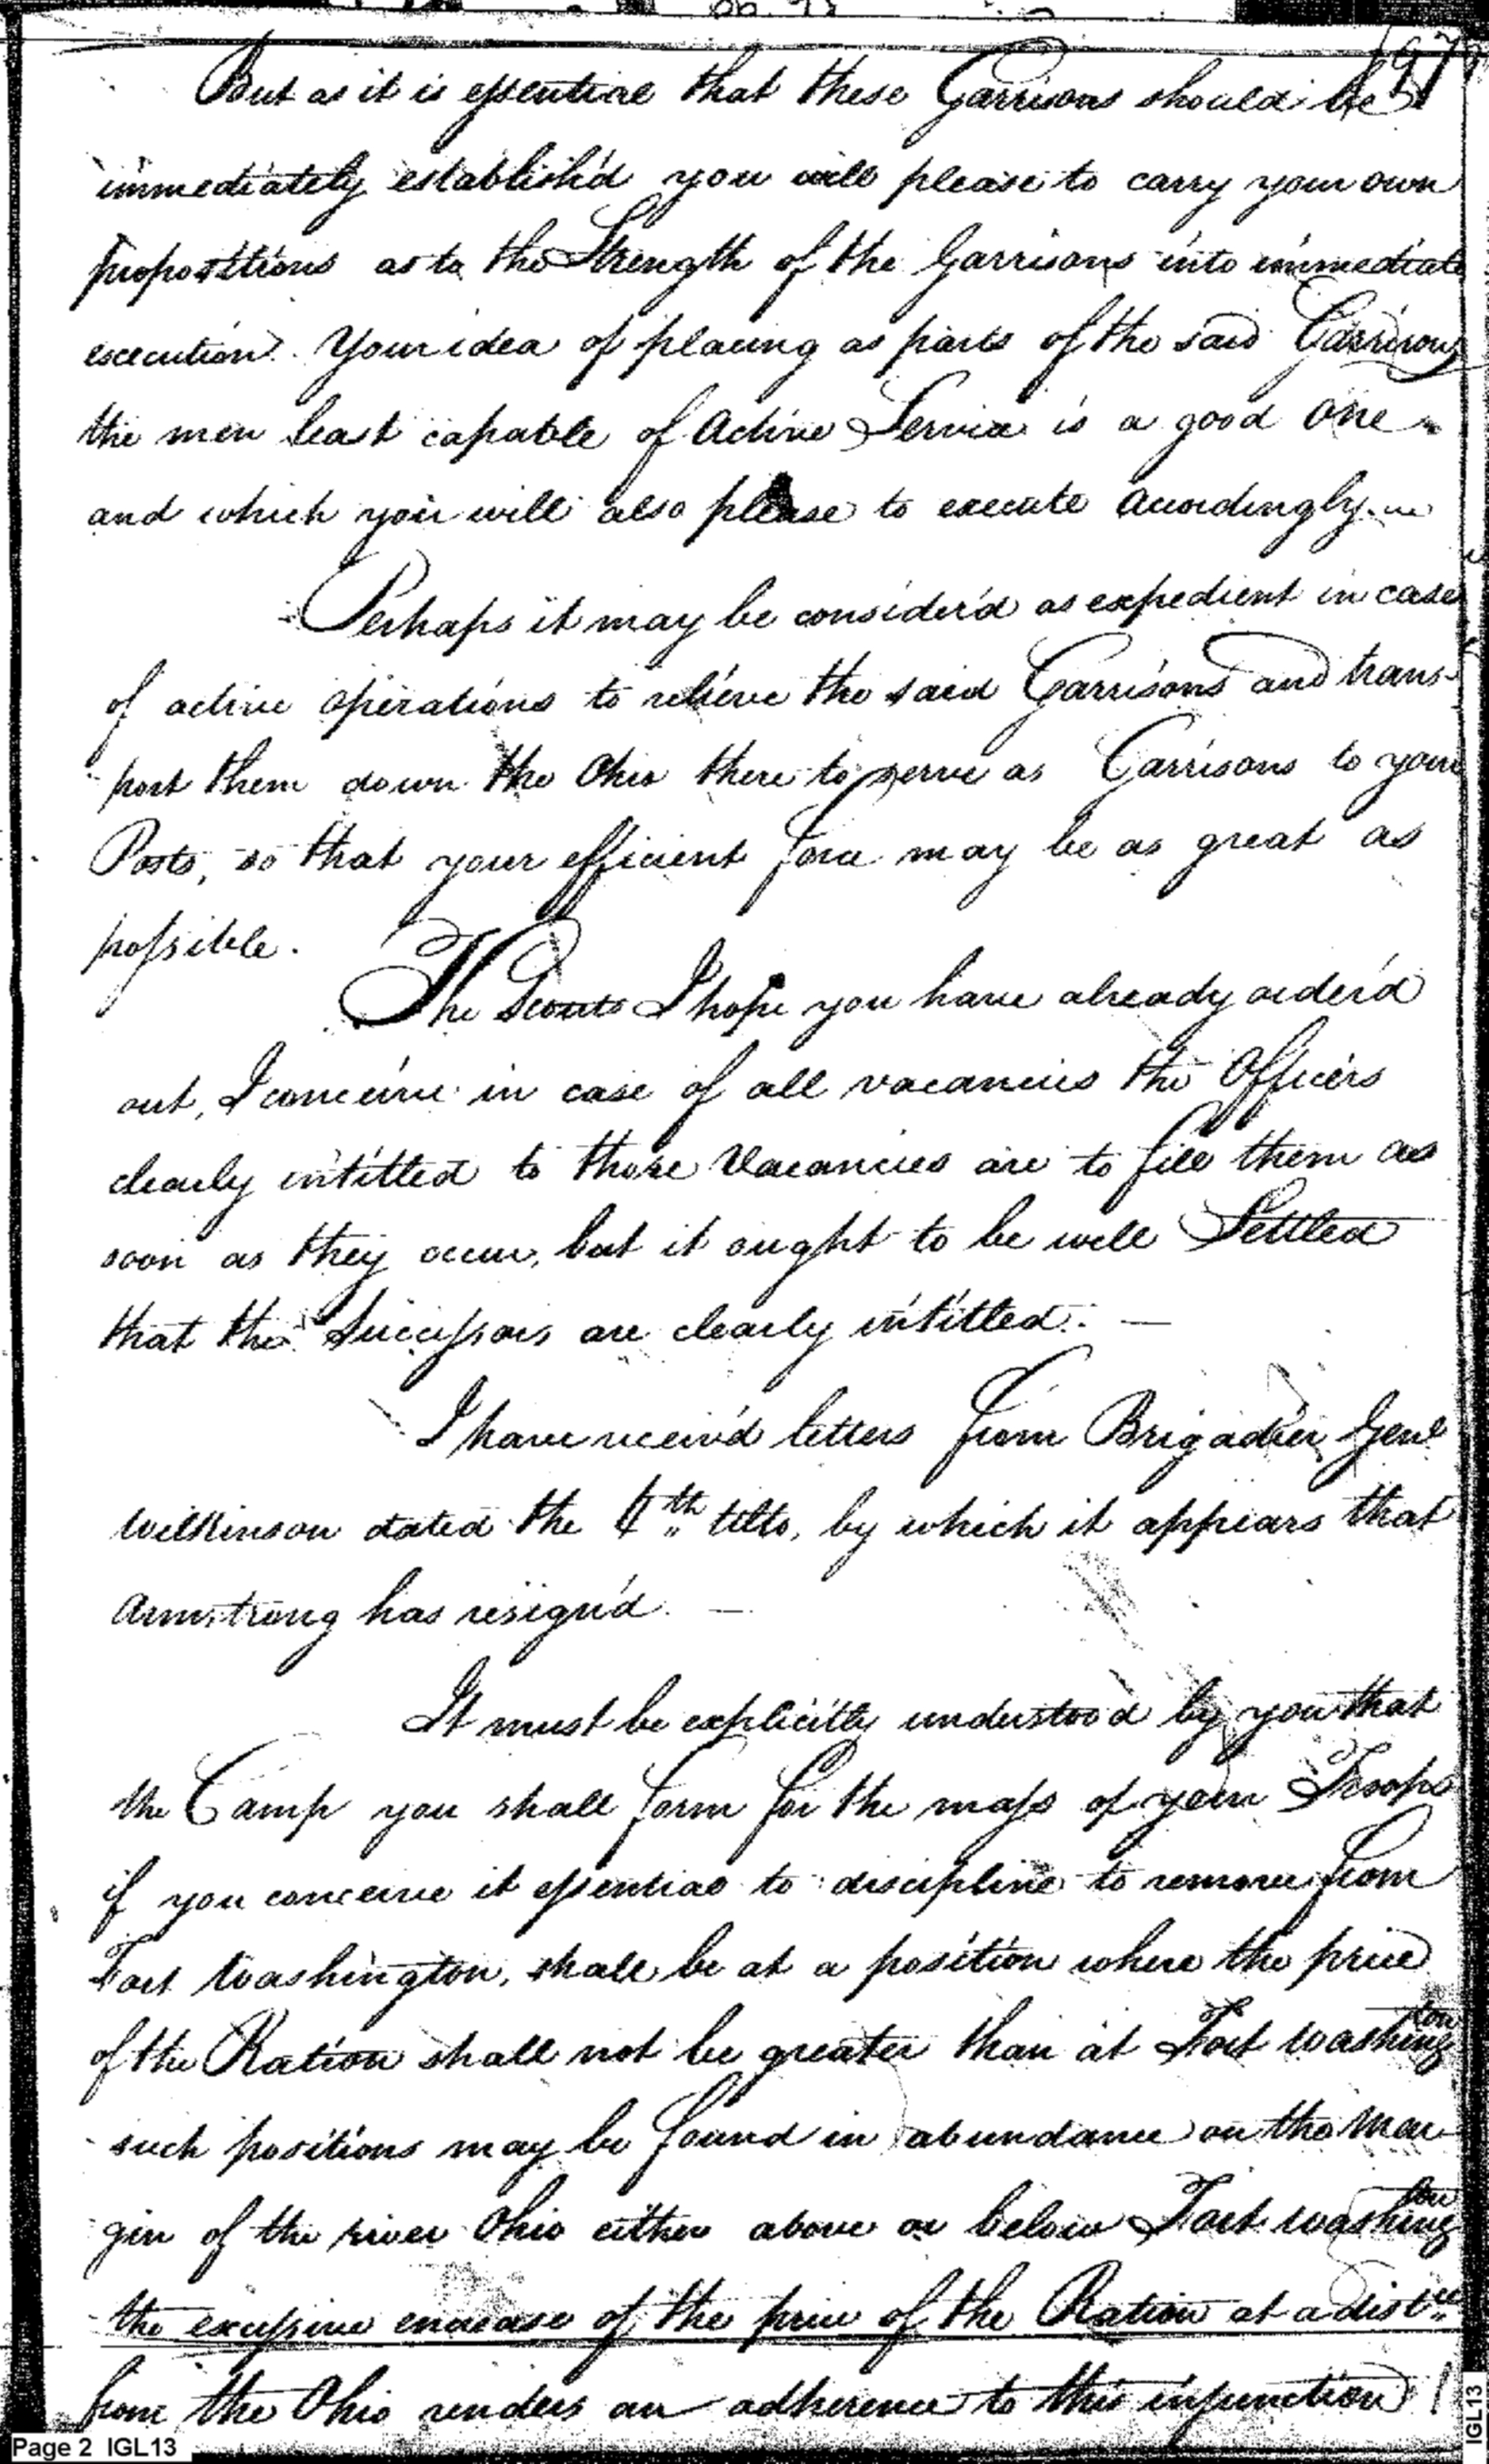 But as it is essential that these Garrisons should be
immediately establish'd you will please to carry your own
propositions as to the Strength of the Garrisons into immediate
execution. Your idea of placing as parts of the said Garrisons
the men least capable of Active Service is a good one
and which you will also please to execute accordingly.
Perhaps it may be consider'd as expedient in case
of active operations to relieve the said Garrisons and trans-
port them down the Ohio there to serve as Garrisons to your
Posts, so that your efficient force may be as great as
possible.
The Scouts I hope you have already order'd
out, I conceive in case of all vacancies the Officers
clearly intitled to those Vacancies are to fill them as
soon as they occur, but it ought to be well Settled
that the Successors are clearly intitled. —
I have receiv'd letters from Brigadier Genl
Wilkinson dated the 4th ulto, by which it appears that
Armstrong has resign'd. —
It must be explicitly understood by you that
the Camp you shall form for the mass of your Troops
if you conceive it essential to discipline to remove from
Fort Washington, shall be at a position where the price
of the Ration shall not be greater than at Fort Washington
such positions may be found in abundance on the Mar-
gin of the river Ohio either above or below Fort Washington
the excessive encrease of the price of the Ration at a distce
from the Ohio renders an adherence to this injunction
Page 2 IGL13
IGL13